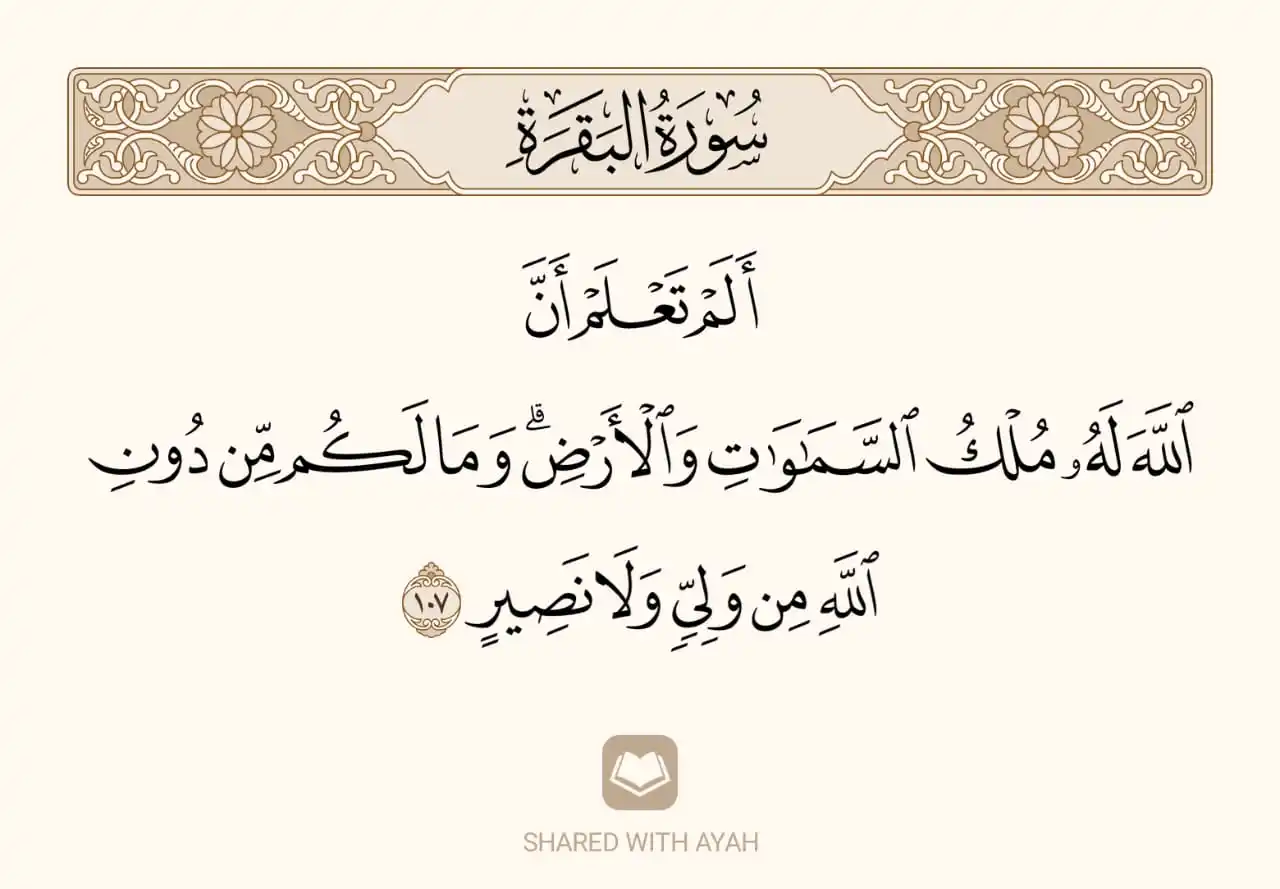 سُورَةُ البَقَرَةِ
أَلَمْ تَعْلَمْ أَنَّ
ٱللَّهَ لَهُۥ مُلْكُ ٱلسَّمَـٰوَٰتِ وَٱلْأَرْضِ ۗ وَمَا لَكُم مِّن دُونِ
ٱللَّهِ مِن وَلِىٍّ وَلَا نَصِيرٍ ١٠٧
SHARED WITH AYAH